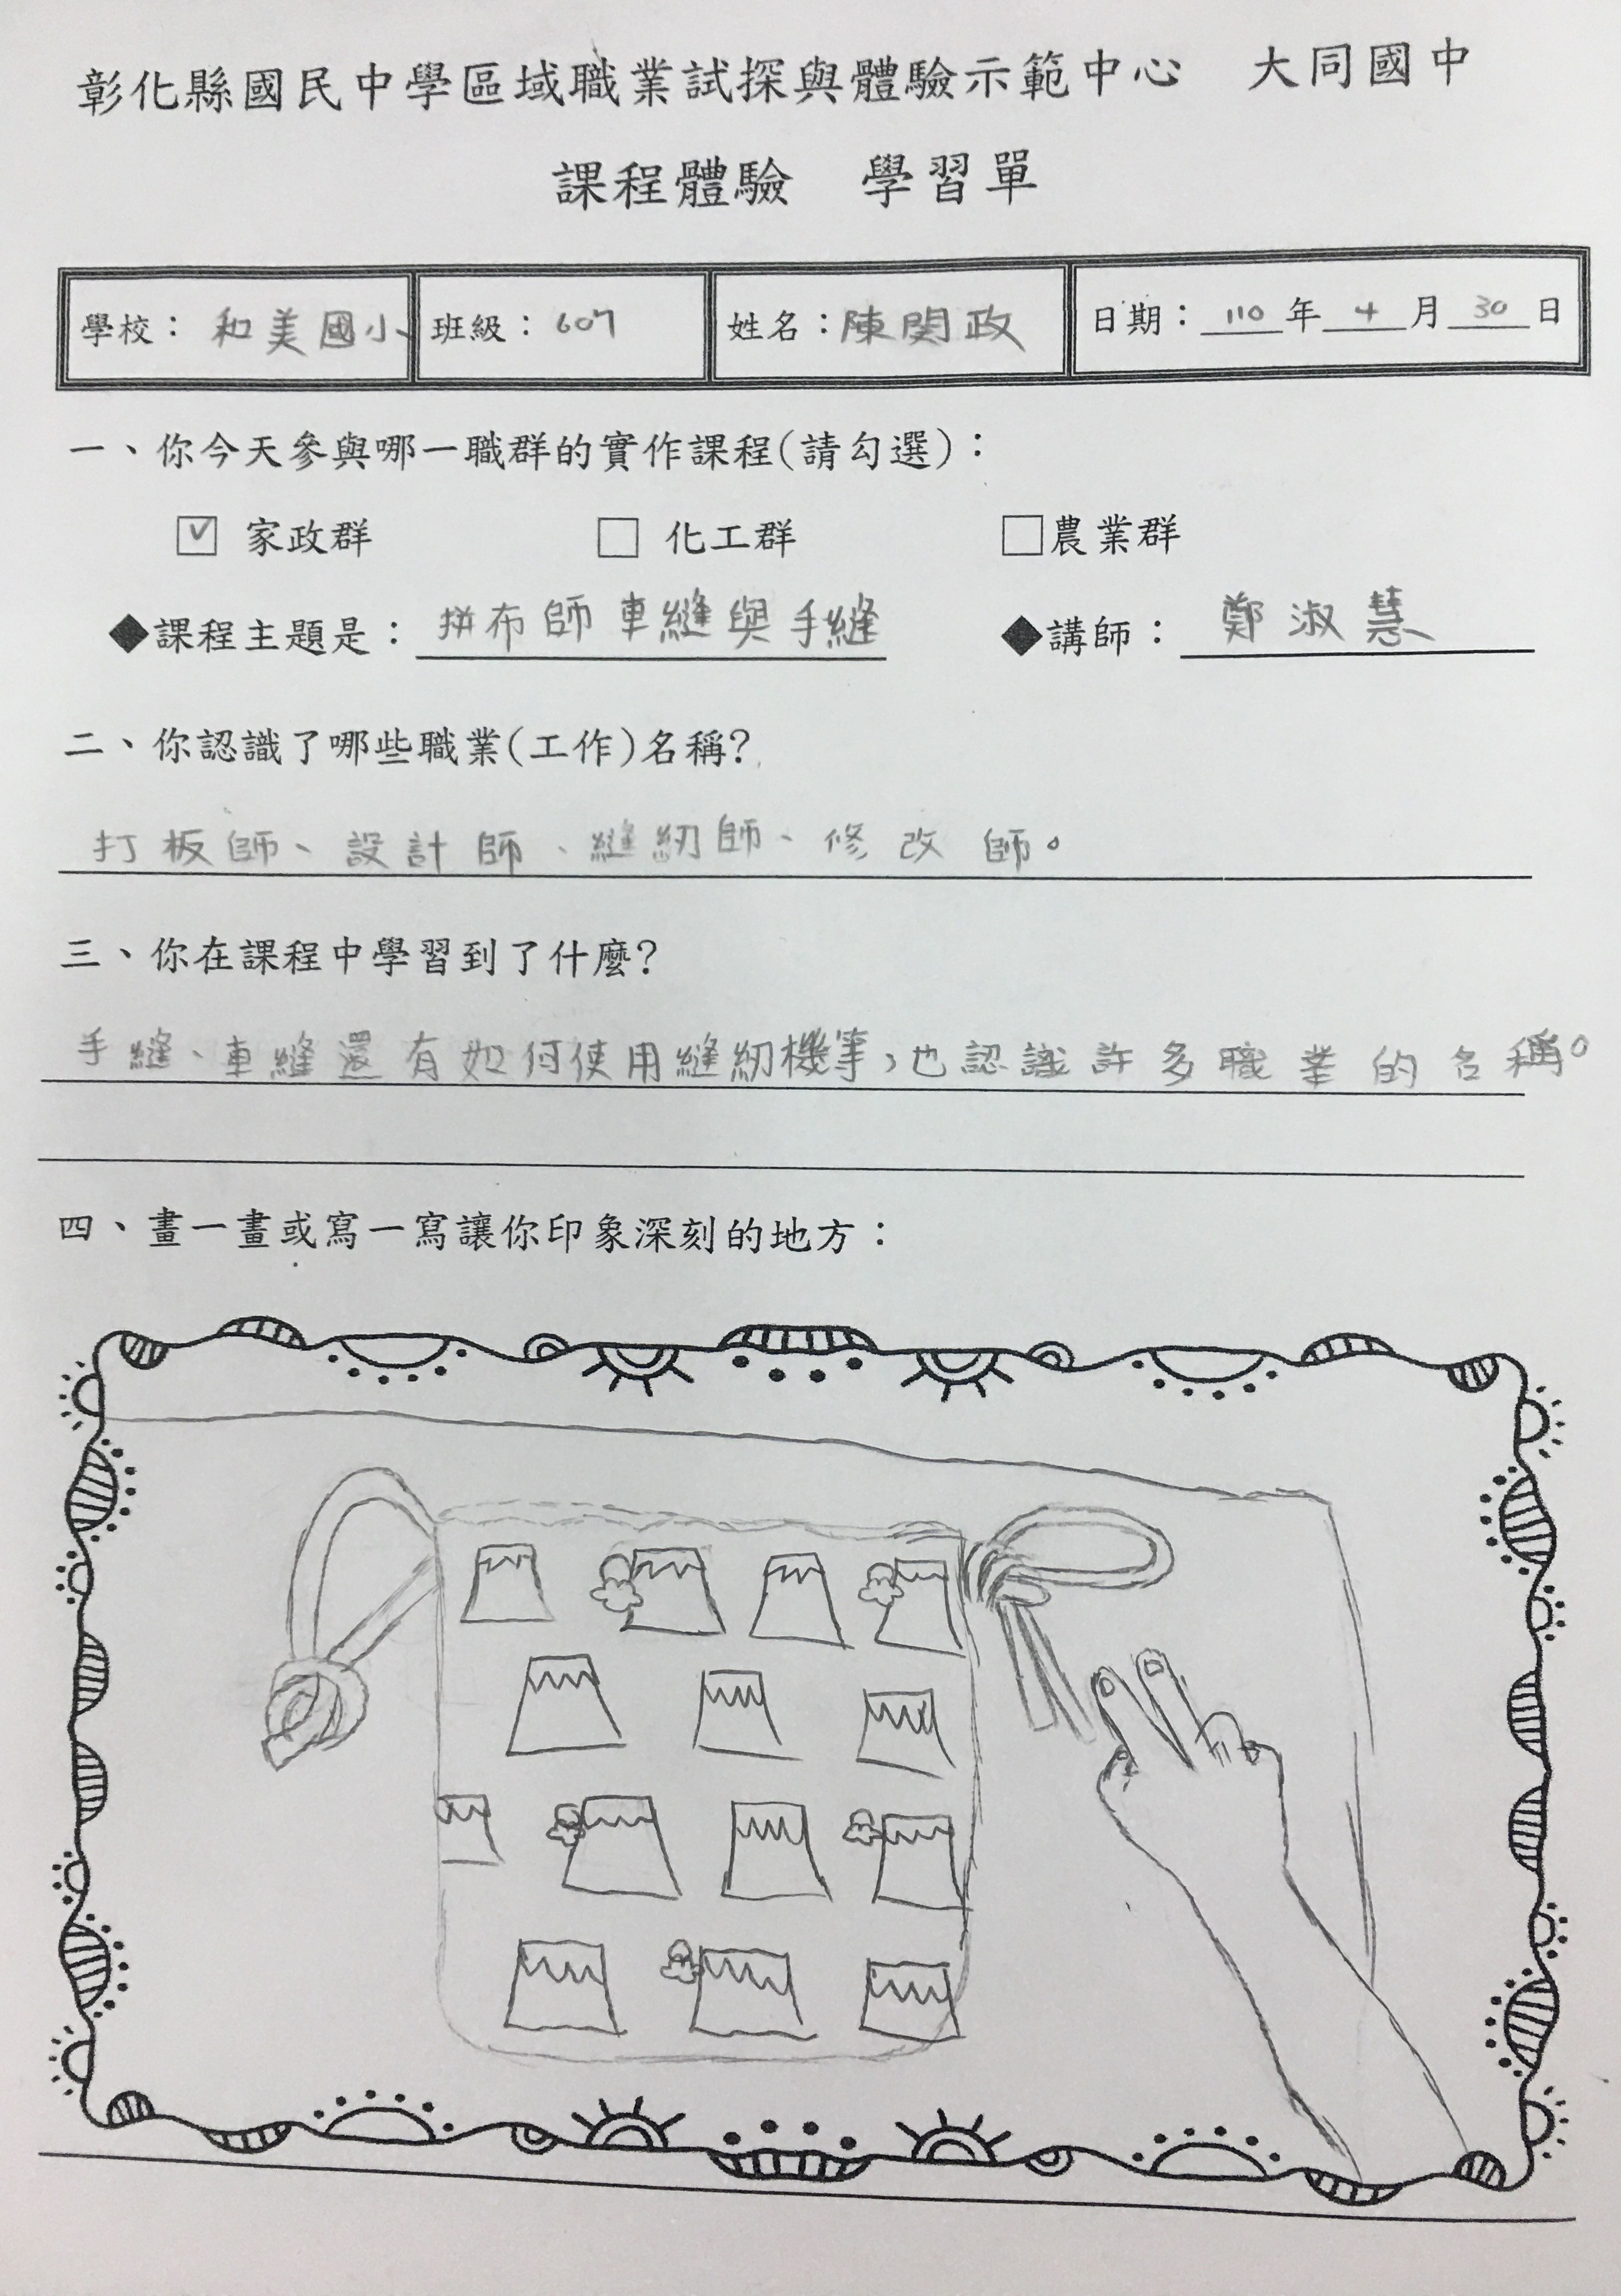 彰化縣國民中學區域職業試探與體驗示範中心　大同國中
課程體驗　學習單
學校：和美國小 班級：607 姓名：陳閔政 日期：110年4月30日
一、你今天參與哪一職群的實作課程(請勾選)：
☑ 家政群 □ 化工群 □農業群
◆課程主題是：拼布師車縫與手縫 ◆講師：鄭淑慧
二、你認識了哪些職業(工作)名稱?
打板師、設計師、縫紉師、修改師。
三、你在課程中學習到了什麼?
手縫、車縫還有如何使用縫紉機等，也認識許多職業的名稱。
四、畫一畫或寫一寫讓你印象深刻的地方：